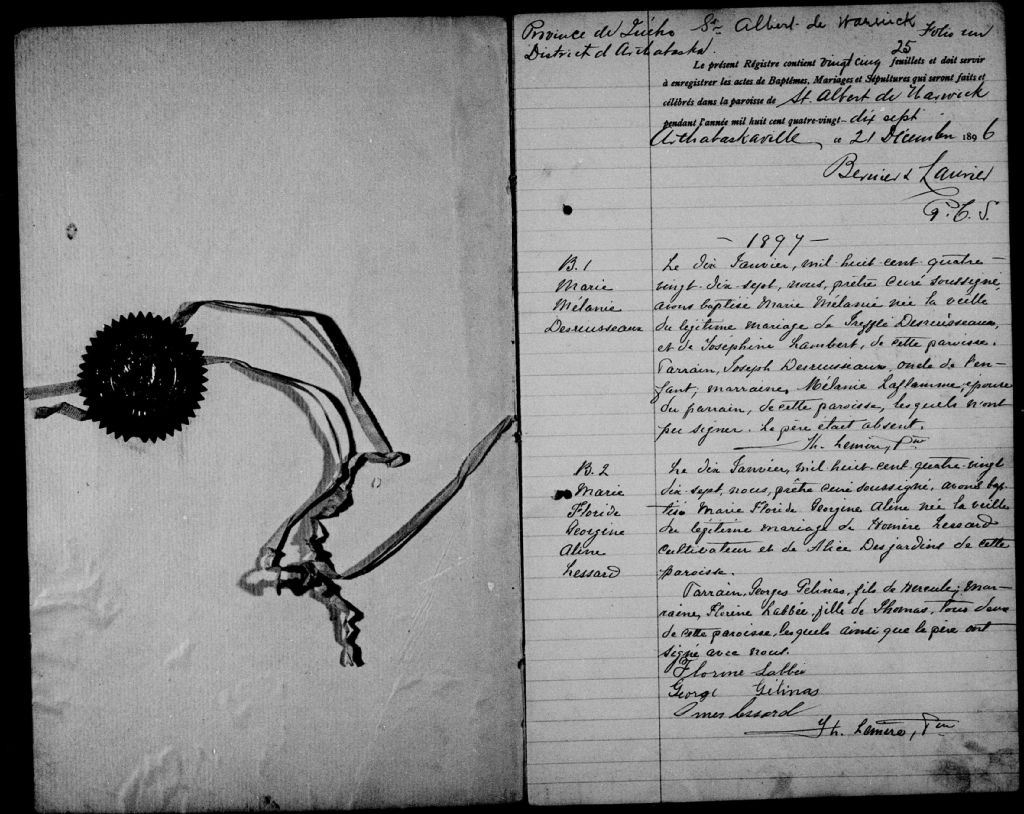 Province de Québec St Albert de Warwick Folio un
District d'Arthabaska.
25
Le présent Régistre contient vingt cinq feuillets et doit servir
à enregistrer les actes de Baptêmes, Mariages et Sépultures qui seront faits et
célébrés dans la paroisse de St. Albert de Warwick
pendant l'année mil huit cent quatre-vingt-dix sept
Arthabaskaville, ce 21 Décembre 1896
Bernier & Laurier
P. C. S.
- 1897 -
B. 1
Marie
Mélanie
Desruisseaux
Le dix Janvier, mil huit cent quatre-
vingt-dix-sept, nous, prêtre curé soussigné,
avons baptisé Marie Mélanie née la veille
du légitime mariage de Trefflé Desruisseaux,
et de Josephine Lambert, de cette paroisse.
Parrain, Joseph Desruisseaux, oncle de l'en-
fant, marraine, Mélanie Laflamme, épouse
du parrain, de cette paroisse, lesquels n'ont
pu signer. Le père était absent.
Th. Lemire, Ptre
B. 2
Marie
Floride
Georgine
Aline
Lessard
Le dix Janvier, mil huit cent quatre-vingt
dix-sept, nous, prêtre curé soussigné, avons bap-
tisé Marie Floride Georgine Aline née la veille
du légitime mariage de Homère Lessard
cultivateur et de Alice Desjardins de cette
paroisse.
Parrain, Georges Gélinas, fils de Hercule; mar-
raine, Florine Labbée, fille de Thomas, tous deux
de cette paroisse, lesquels ainsi que le père ont
signé avec nous.
Florine Labbée
George Gélinas
Omer Lessard
Th. Lemire, Ptre